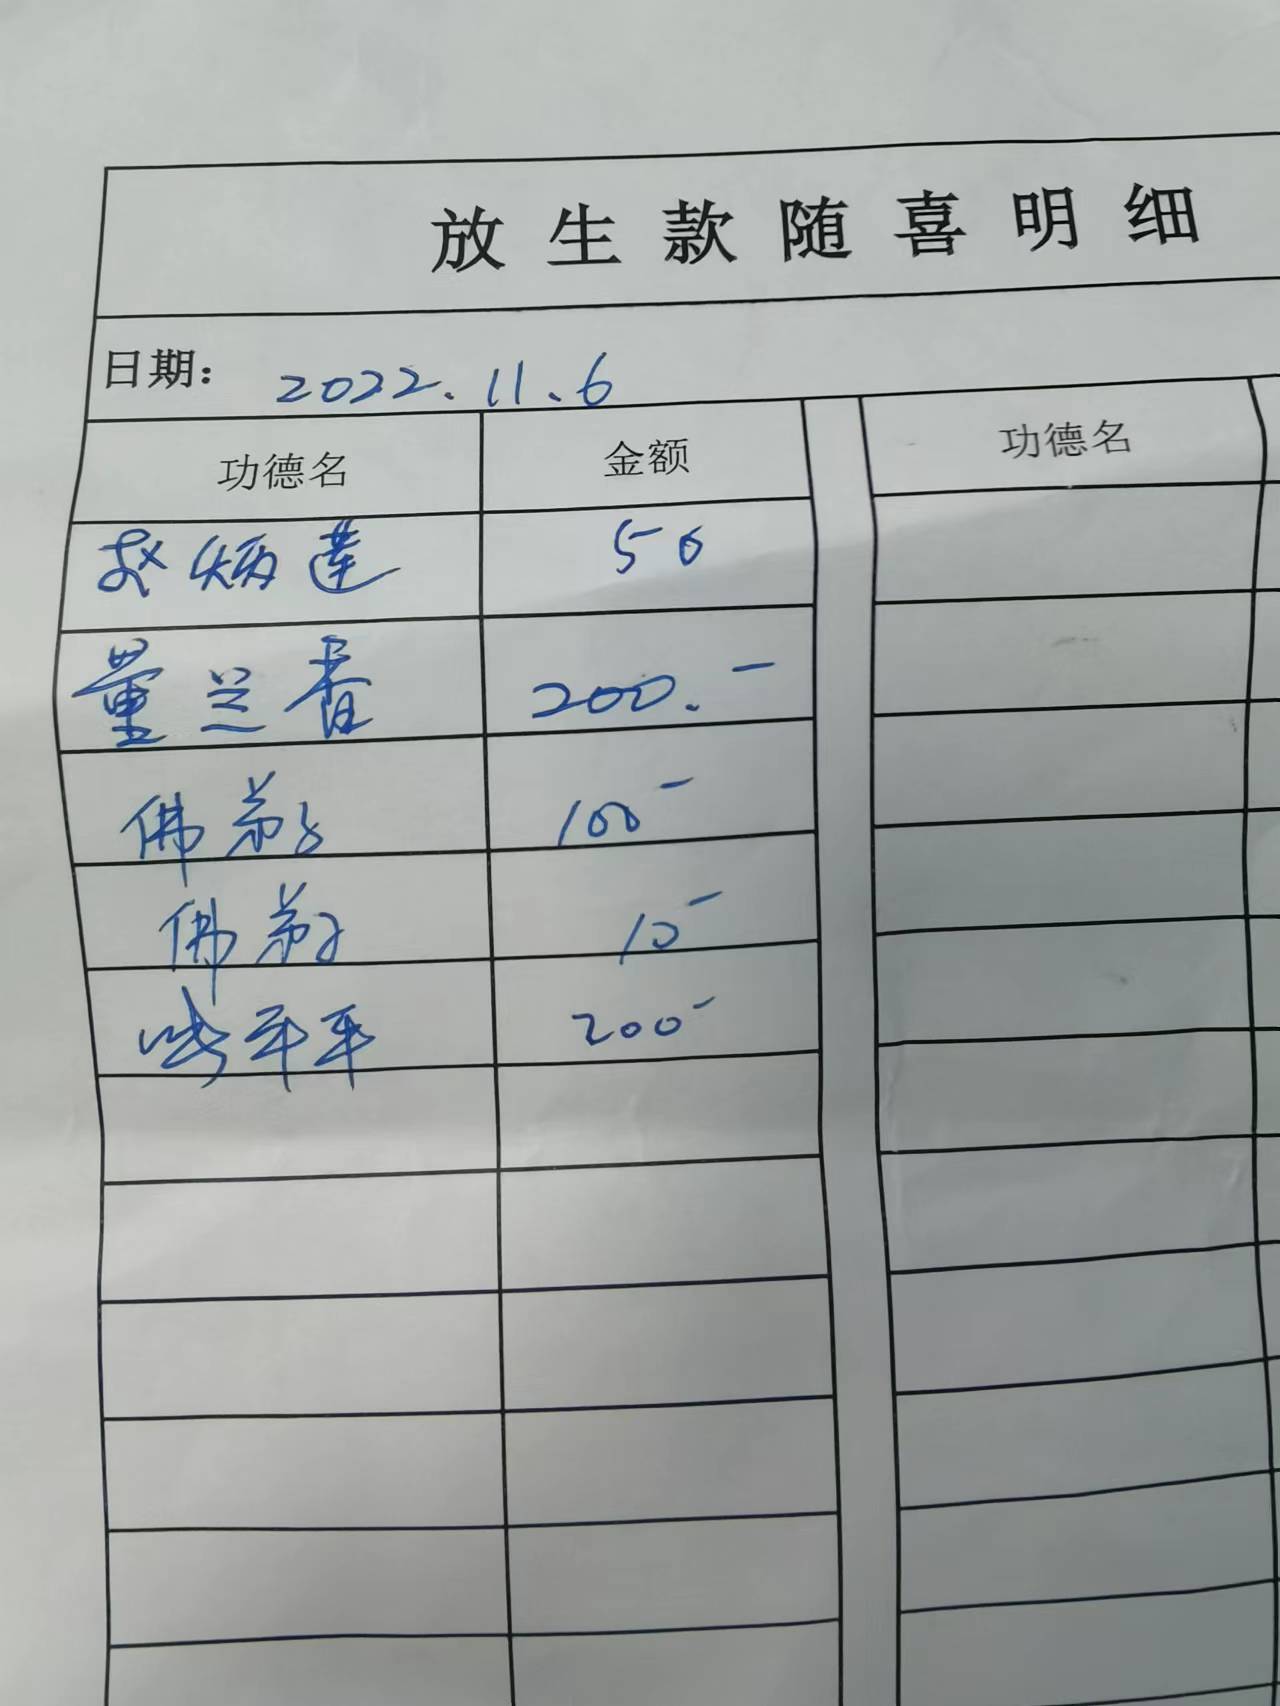 放生款随喜明细
日期： 2022.11.6
功德名 金额 功德名
炳莲 50
董兰香 200.-
佛弟子 100-
佛弟子 10-
平平 200-